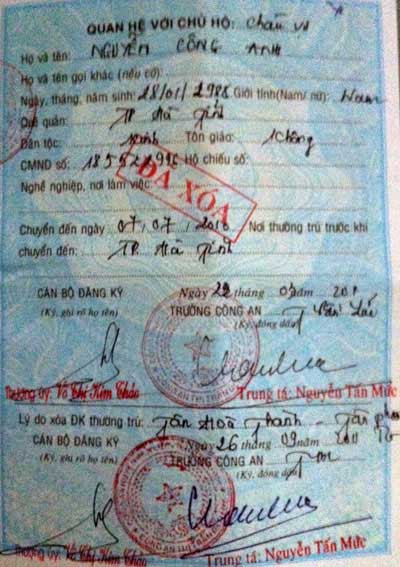 QUAN HỆ VỚI CHỦ HỘ: Cháu vợ
Họ và tên: NGUYỄN CÔNG ANH
Họ và tên gọi khác (nếu có):
Ngày, tháng, năm sinh: 28/01/1986 Giới tính(Nam/ nữ): Nam
Quê quán: TP Hà Tĩnh
Dân tộc: Kinh Tôn giáo: Không
CMND số: Hộ chiếu số:
ĐÃ XÓA
Nghề nghiệp, nơi làm việc:
Chuyển đến ngày 07/07/2010 Nơi thường trú trước khi
chuyển đến: TP. Hà Tĩnh
Ngày 22 tháng 09 năm 201
CÁN BỘ ĐĂNG KÝ TRƯỞNG CÔNG AN
(Ký, ghi rõ họ tên) (Ký, đóng dấu)
Thượng úy: Võ Thị Kim Thảo Trung tá: Nguyễn Tấn Mức
Lý do xóa ĐK thường trú: Tân Hoà Thành - Tân
CÁN BỘ ĐĂNG KÝ Ngày 26 tháng 09 năm 2011
(Ký, ghi rõ họ tên) TRƯỞNG CÔNG AN
(Ký, đóng dấu)
Thượng úy: Võ Thị Kim Thảo Trung tá: Nguyễn Tấn Mức